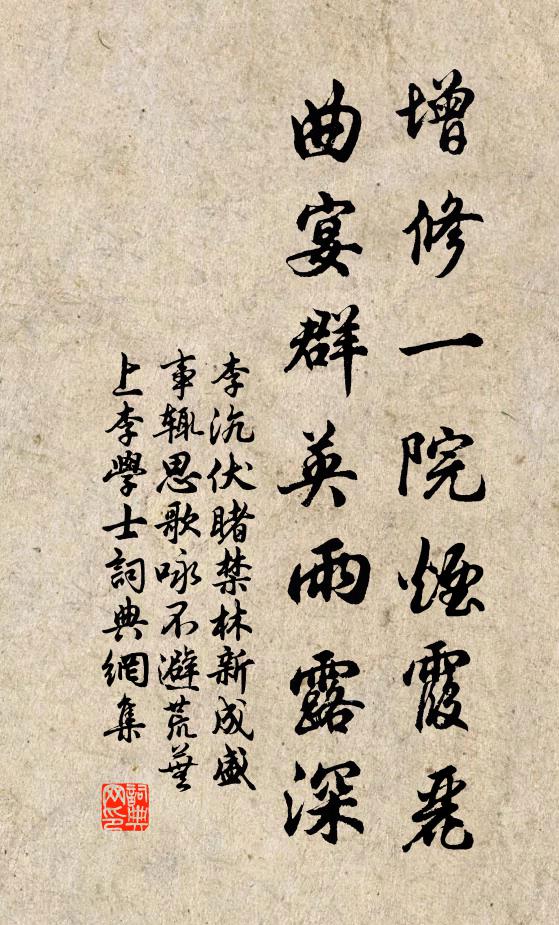 增修一院煙霞麗
曲宴群英雨露深
李沆伏睹禁林新成盛
事輒思歌咏不避荒蕪
上李學士詞典網集
詞典網印